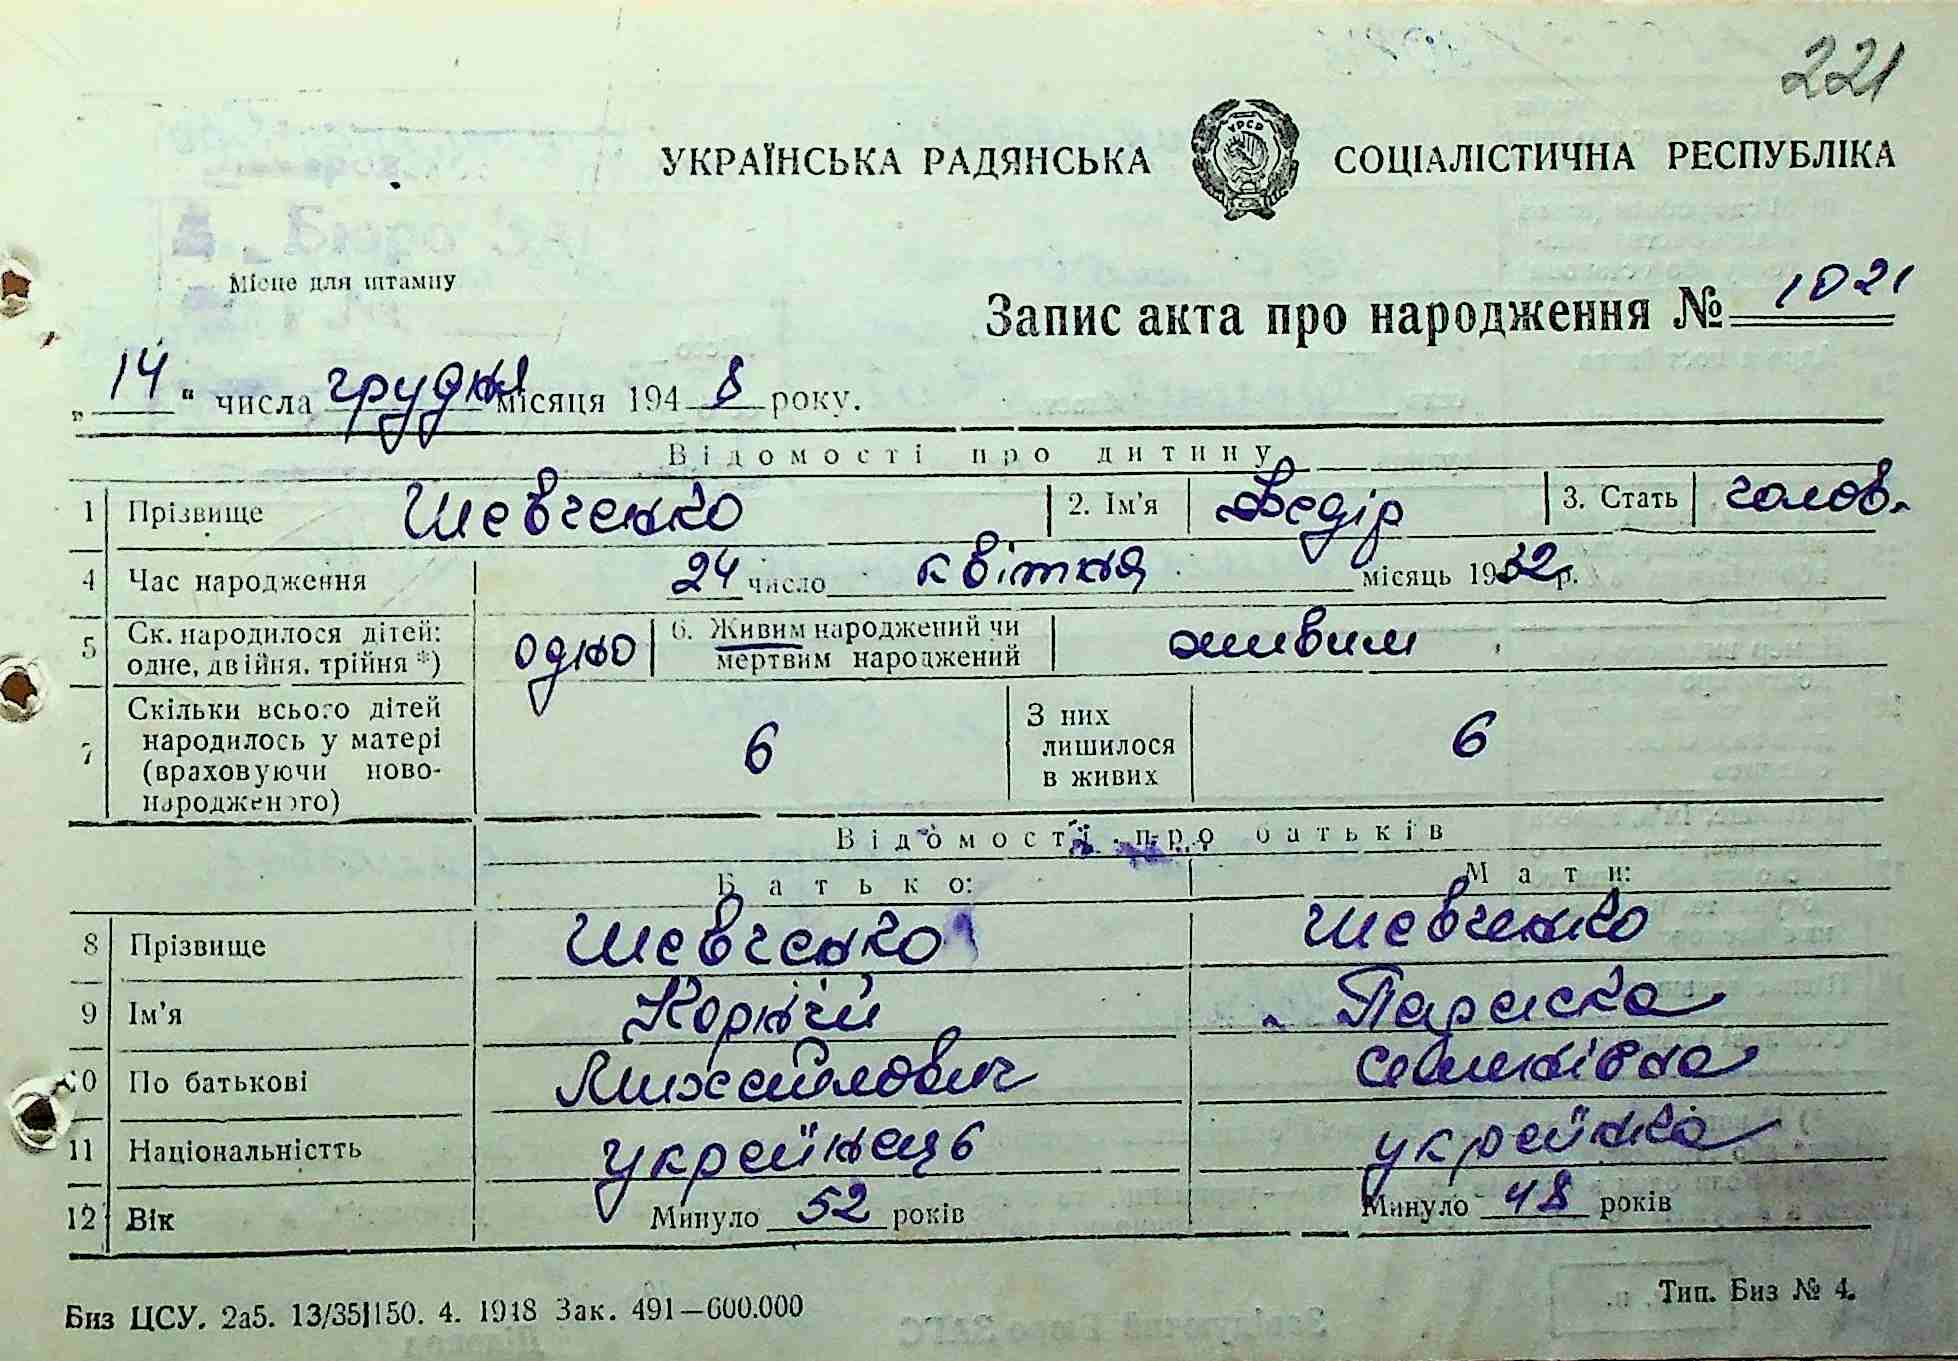 221
УКРАЇНСЬКА РАДЯНСЬКА СОЦІАЛІСТИЧНА РЕСПУБЛІКА
УРСР
Місце для штампу
Запис акта про народження № 1021
„ 14 “ числа грудня місяця 194 8 року.
Відомості про дитину
1 Прізвище Шевченко 2. Ім'я Федір 3. Стать чолов.
4 Час народження 24 число квітня місяць 1932 р.
5 Ск. народилося дітей: одно 6. Живим народжений чи живим
одне, двійня, трійня *) мертвим народжений
7 Скільки всього дітей
народилось у матері
(враховуючи ново-
народженого) 6 З них
лишилося
в живих 6
Відомості про батьків
Батько: Мати:
8 Прізвище Шевченко Шевченко
9 Ім'я Корній Параска
10 По батькові Михайлович Семенівна
11 Національністть українець українка
12 Вік Минуло 52 років Минуло 48 років
Биз ЦСУ. 2а5. 13/35|150. 4. 1948 Зак. 491—600.000 Тип. Биз № 4.